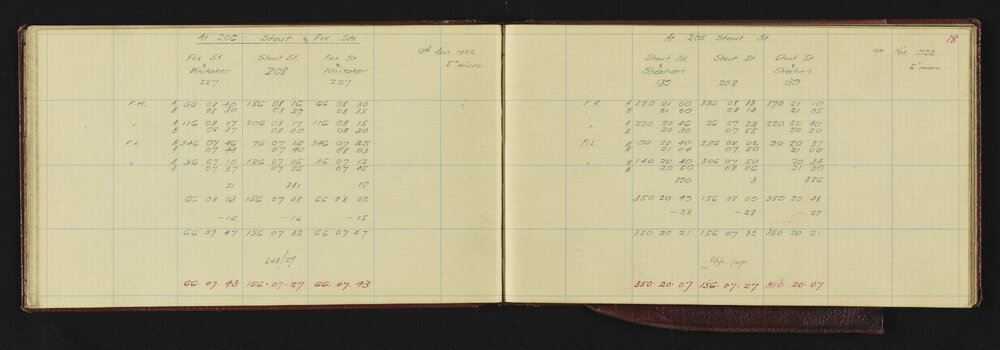 At 206 Stout & Fox Sts.
9th Nov. 1922
5" micro
Fox St & Whitaker 227
Stout St. 208
Fox St & Whitaker 227
F.R. A 66 08 40 156 08 16 66 08 30
B 08 30 08 29 08 35
" A 116 08 17 206 08 17 116 08 15
B 08 37 08 00 08 30
F.L. B 346 07 46 76 07 10 346 07 25
A 07 49 07 40 08 03
" B 36 07 10 126 07 06 36 07 12
A 07 37 07 25 07 45
21 381 15
66 08 03 156 07 48 66 08 02
-16 -16 -15
66 07 47 156 07 32 66 07 47
648/27
66. 07. 43 156. 07. 27 66. 07. 43
18
At 205 Stout St
9th Nov. 1922
5" micro.
Stout St & Sheehan 139
Stout St 208
Stout St & Sheehan 139
F.R. A 170 21 00 336 08 33 170 21 10
B 21 00 08 14 21 05
" A 220 20 46 26 07 33 220 20 40
B 20 30 07 55 20 20
F.L. B 90 20 40 256 08 02 90 20 37
A 21 04 07 50 21 00
" B 140 20 40 306 07 50 20 34
A 20 50 08 06 21 00
390 3 386
350 20 49 156 08 00 350 20 48
-28 -28 -27
350 20 21 156 07 32 350 20 21
Opp. page
350. 20. 07 156. 07. 27 350. 20. 07